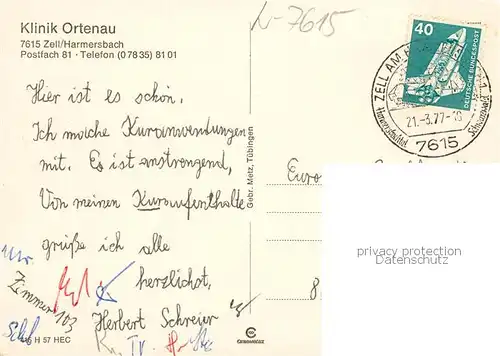 Klinik Ortenau
7615 Zell/Harmersbach
Postfach 81 · Telefon (0 78 35) 81 01
W-7615
40
DEUTSCHE BUNDESPOST
ZELL AM
21.-3.77-18
Harmersbachtal
Schwarzwald
7615
Hier ist es schön.
Ich mache Kuranwendungen
mit. Es ist anstrengend,
Von meinen Kuraufenthalte
grüße ich alle
herzlichst,
Herbert Schreier
Zimmer 103
Gebr. Metz, Tübingen
Euro
8
privacy protection
Datenschutz
H 57 HEC